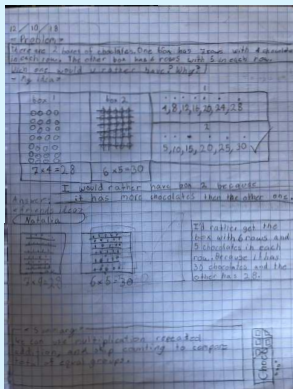 12/10/18
- Problem -
There are 2 boxes of chocolates. One box has 7 rows with 4 chocolates
in each row. The other box has 6 rows with 5 in each row.
Which one would u rather have? Why?
- My ideas
box 1
box 2
1
4, 8, 12, 16, 20, 24, 28
2
5, 10, 15, 20, 25, 30
7x4=28
6x5=30
I would rather have box 2 because
it has more chocolates then the other one.
Natalia
7x4=28
6x5=30
I'd rather get the
box with 6 rows and
5 chocolates in each
row. Because it has
30 chocolates and the
other has 28.
- Summary -
We can use multiplication, repeated
addition, and skip counting to compare
of equal groups.